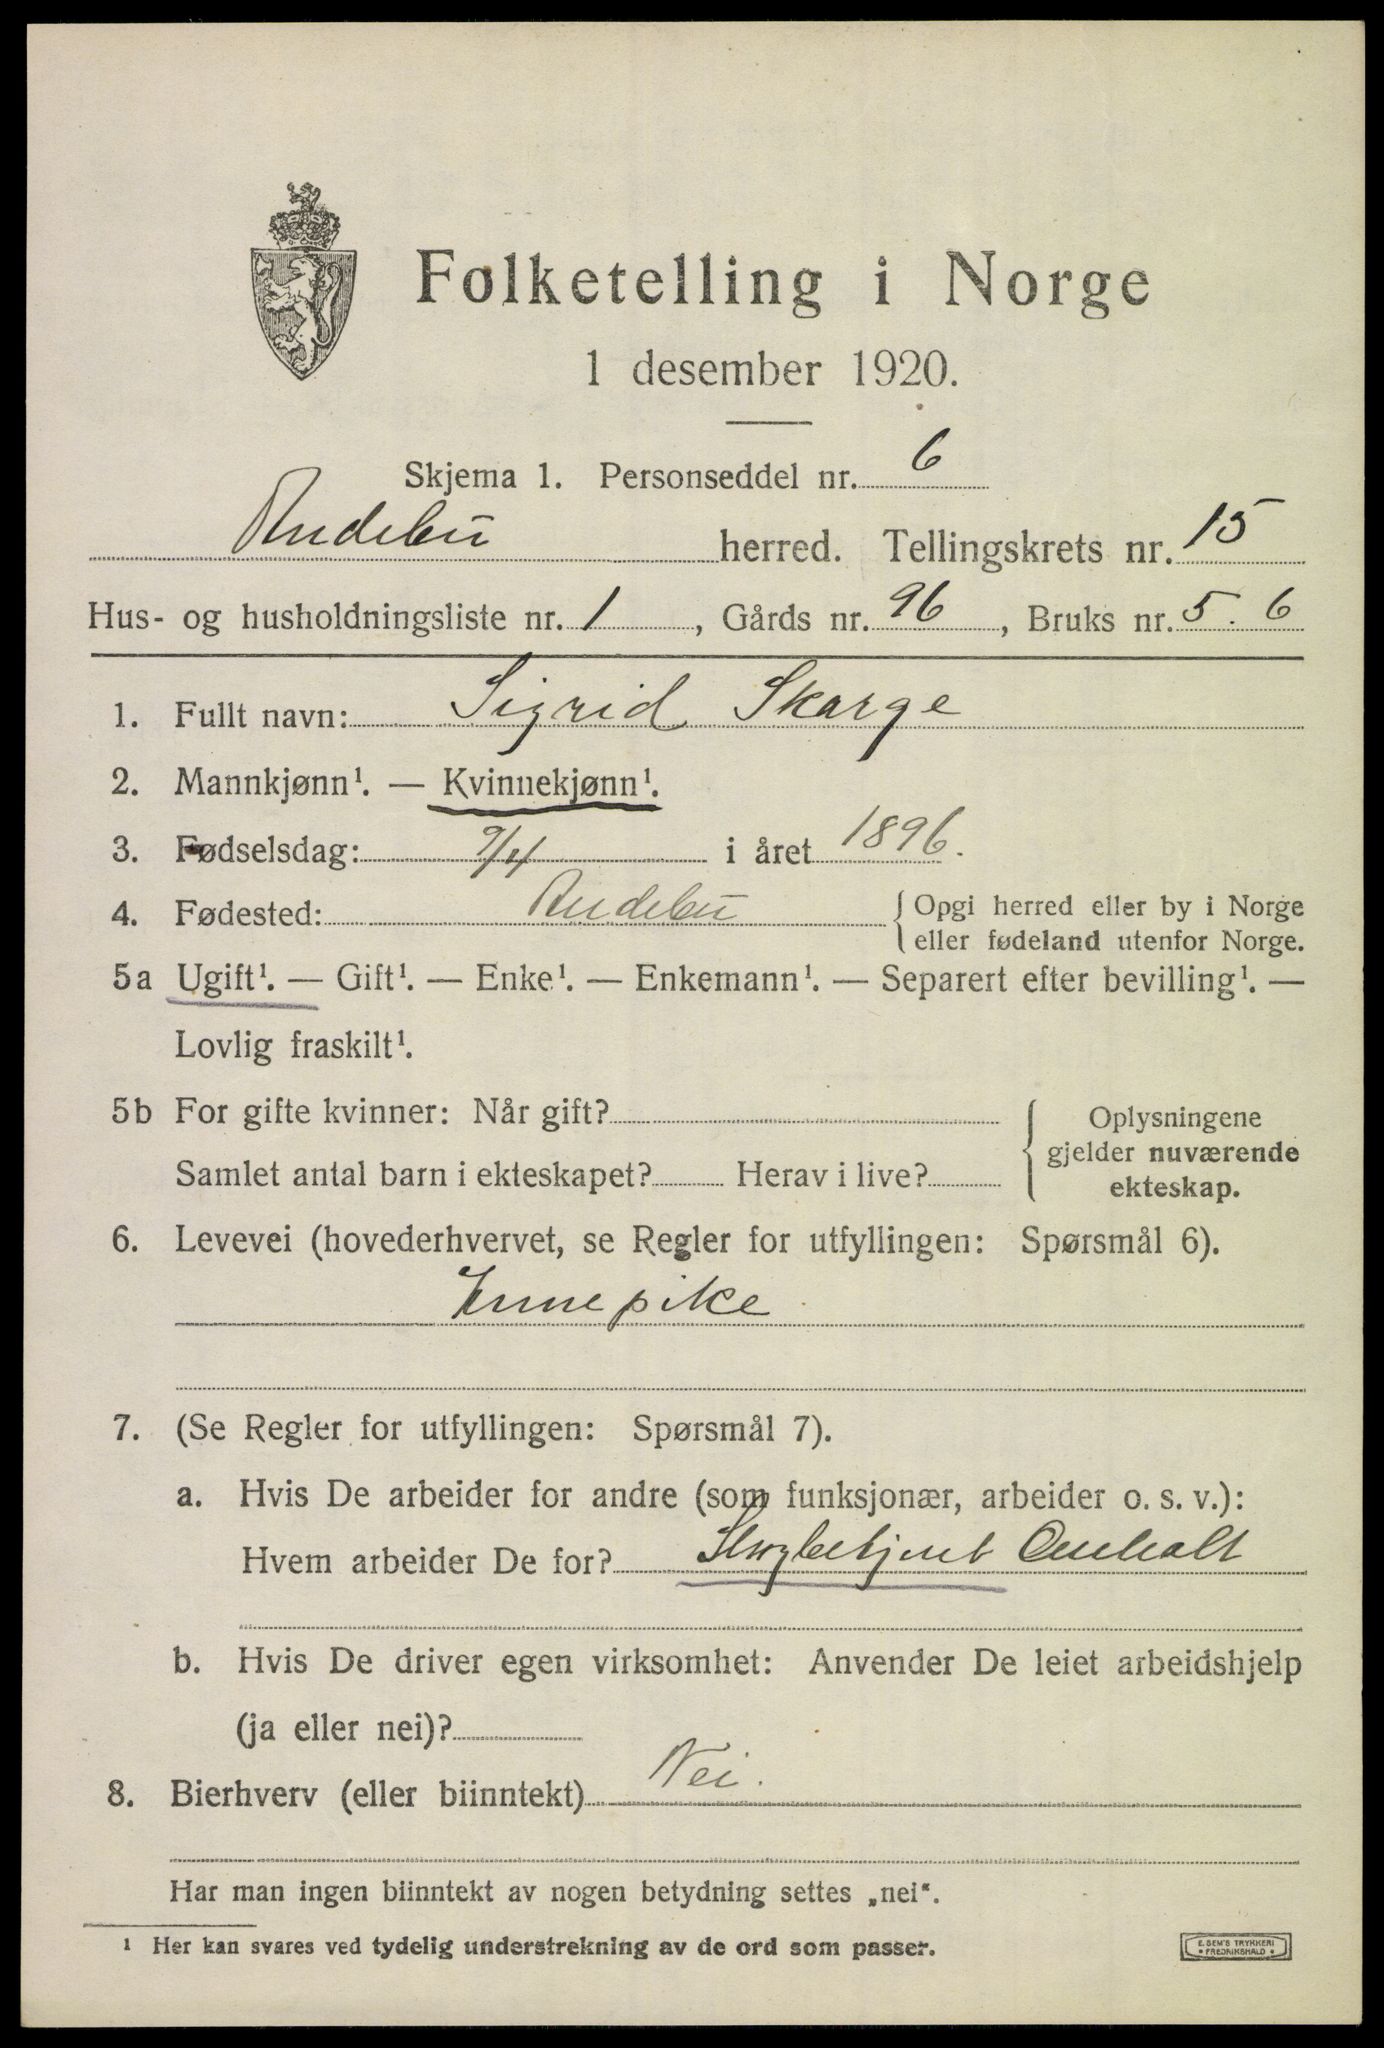 Folketelling i Norge
1 desember 1920.
Skjema 1. Personseddel nr. 6
Andebu herred. Tellingskrets nr. 15
Hus- og husholdningsliste nr. 1, Gårds nr. 96, Bruks nr. 5. 6
1. Fullt navn: Sigrid Skarge
2. Mannkjønn¹. — Kvinnekjønn¹.
3. Fødselsdag: 9/4 i året 1896.
4. Fødested: Andebu { Opgi herred eller by i Norge
eller fødeland utenfor Norge.
5a Ugift¹. — Gift¹. — Enke¹. — Enkemann¹. — Separert efter bevilling¹. —
Lovlig fraskilt¹.
5b For gifte kvinner: Når gift? { Oplysningene
gjelder nuværende
Samlet antal barn i ekteskapet? Herav i live? ekteskap.
6. Levevei (hovederhvervet, se Regler for utfyllingen: Spørsmål 6).
Innepike
7. (Se Regler for utfyllingen: Spørsmål 7).
a. Hvis De arbeider for andre (som funksjonær, arbeider o. s. v.):
Hvem arbeider De for?
b. Hvis De driver egen virksomhet: Anvender De leiet arbeidshjelp
(ja eller nei)?
8. Bierhverv (eller biinntekt) Nei.
Har man ingen biinntekt av nogen betydning settes „nei".
¹ Her kan svares ved tydelig understrekning av de ord som passer.
E. SEM'S TRYKKERI
• FREDRIKSHALD •